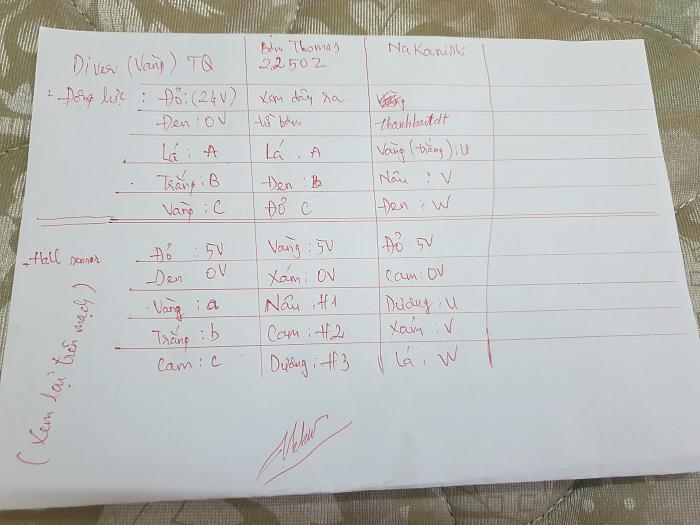 Diver (Vàng) TQ Bơm Thomas 22502 Nakanishi
+ Động lực : Đỏ: (24V) xem dây ra
Đen: 0V từ bơm thanhhaitdt
Lá : A Lá : A Vàng (trắng): U
Trắng: B Đen: B Nâu : V
Vàng : C Đỏ C Đen : W
+ Hall sensor Đỏ : 5V Vàng : 5V Đỏ : 5V
Đen 0V Xám : 0V Cam : 0V
Vàng : a Nâu : H1 Dương : U
Trắng : b Cam : H2 Xám : V
Cam : C Dương : H3 Lá : W
( Xem lại trên mạch )